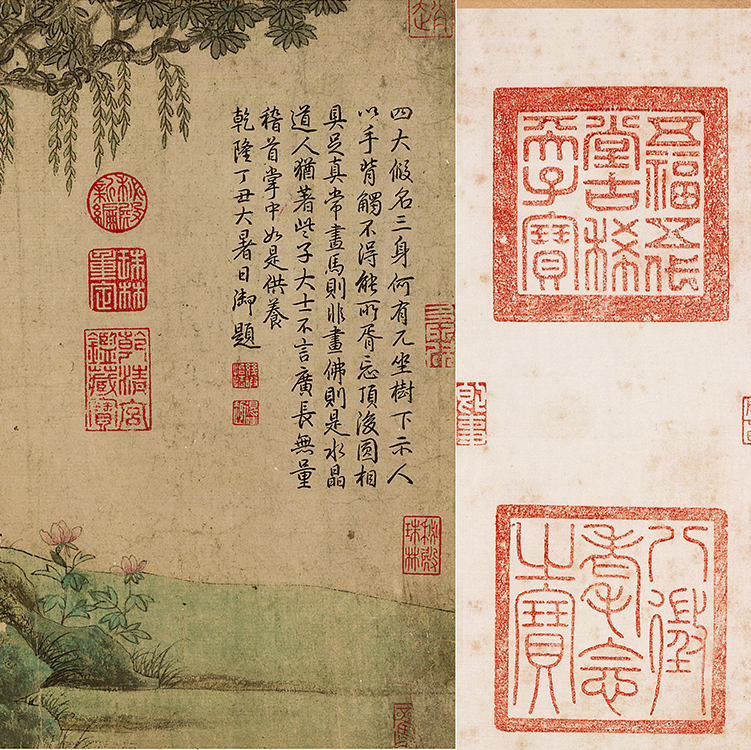 五福五代
堂古稀
天子寶
八徵
耄念
之寶
四大假名三身何有兀坐樹下示人
以手背觸不得能所胥忘頂後圓相
具足真常畫馬則非畫佛則是水晶
道人猶著些子大士不言廣長無量
稽首掌中如是供養
乾隆丁丑大暑日御題
秘殿
新編
珠林
重定
乾清宮
鑑藏寶
秘殿
珠林